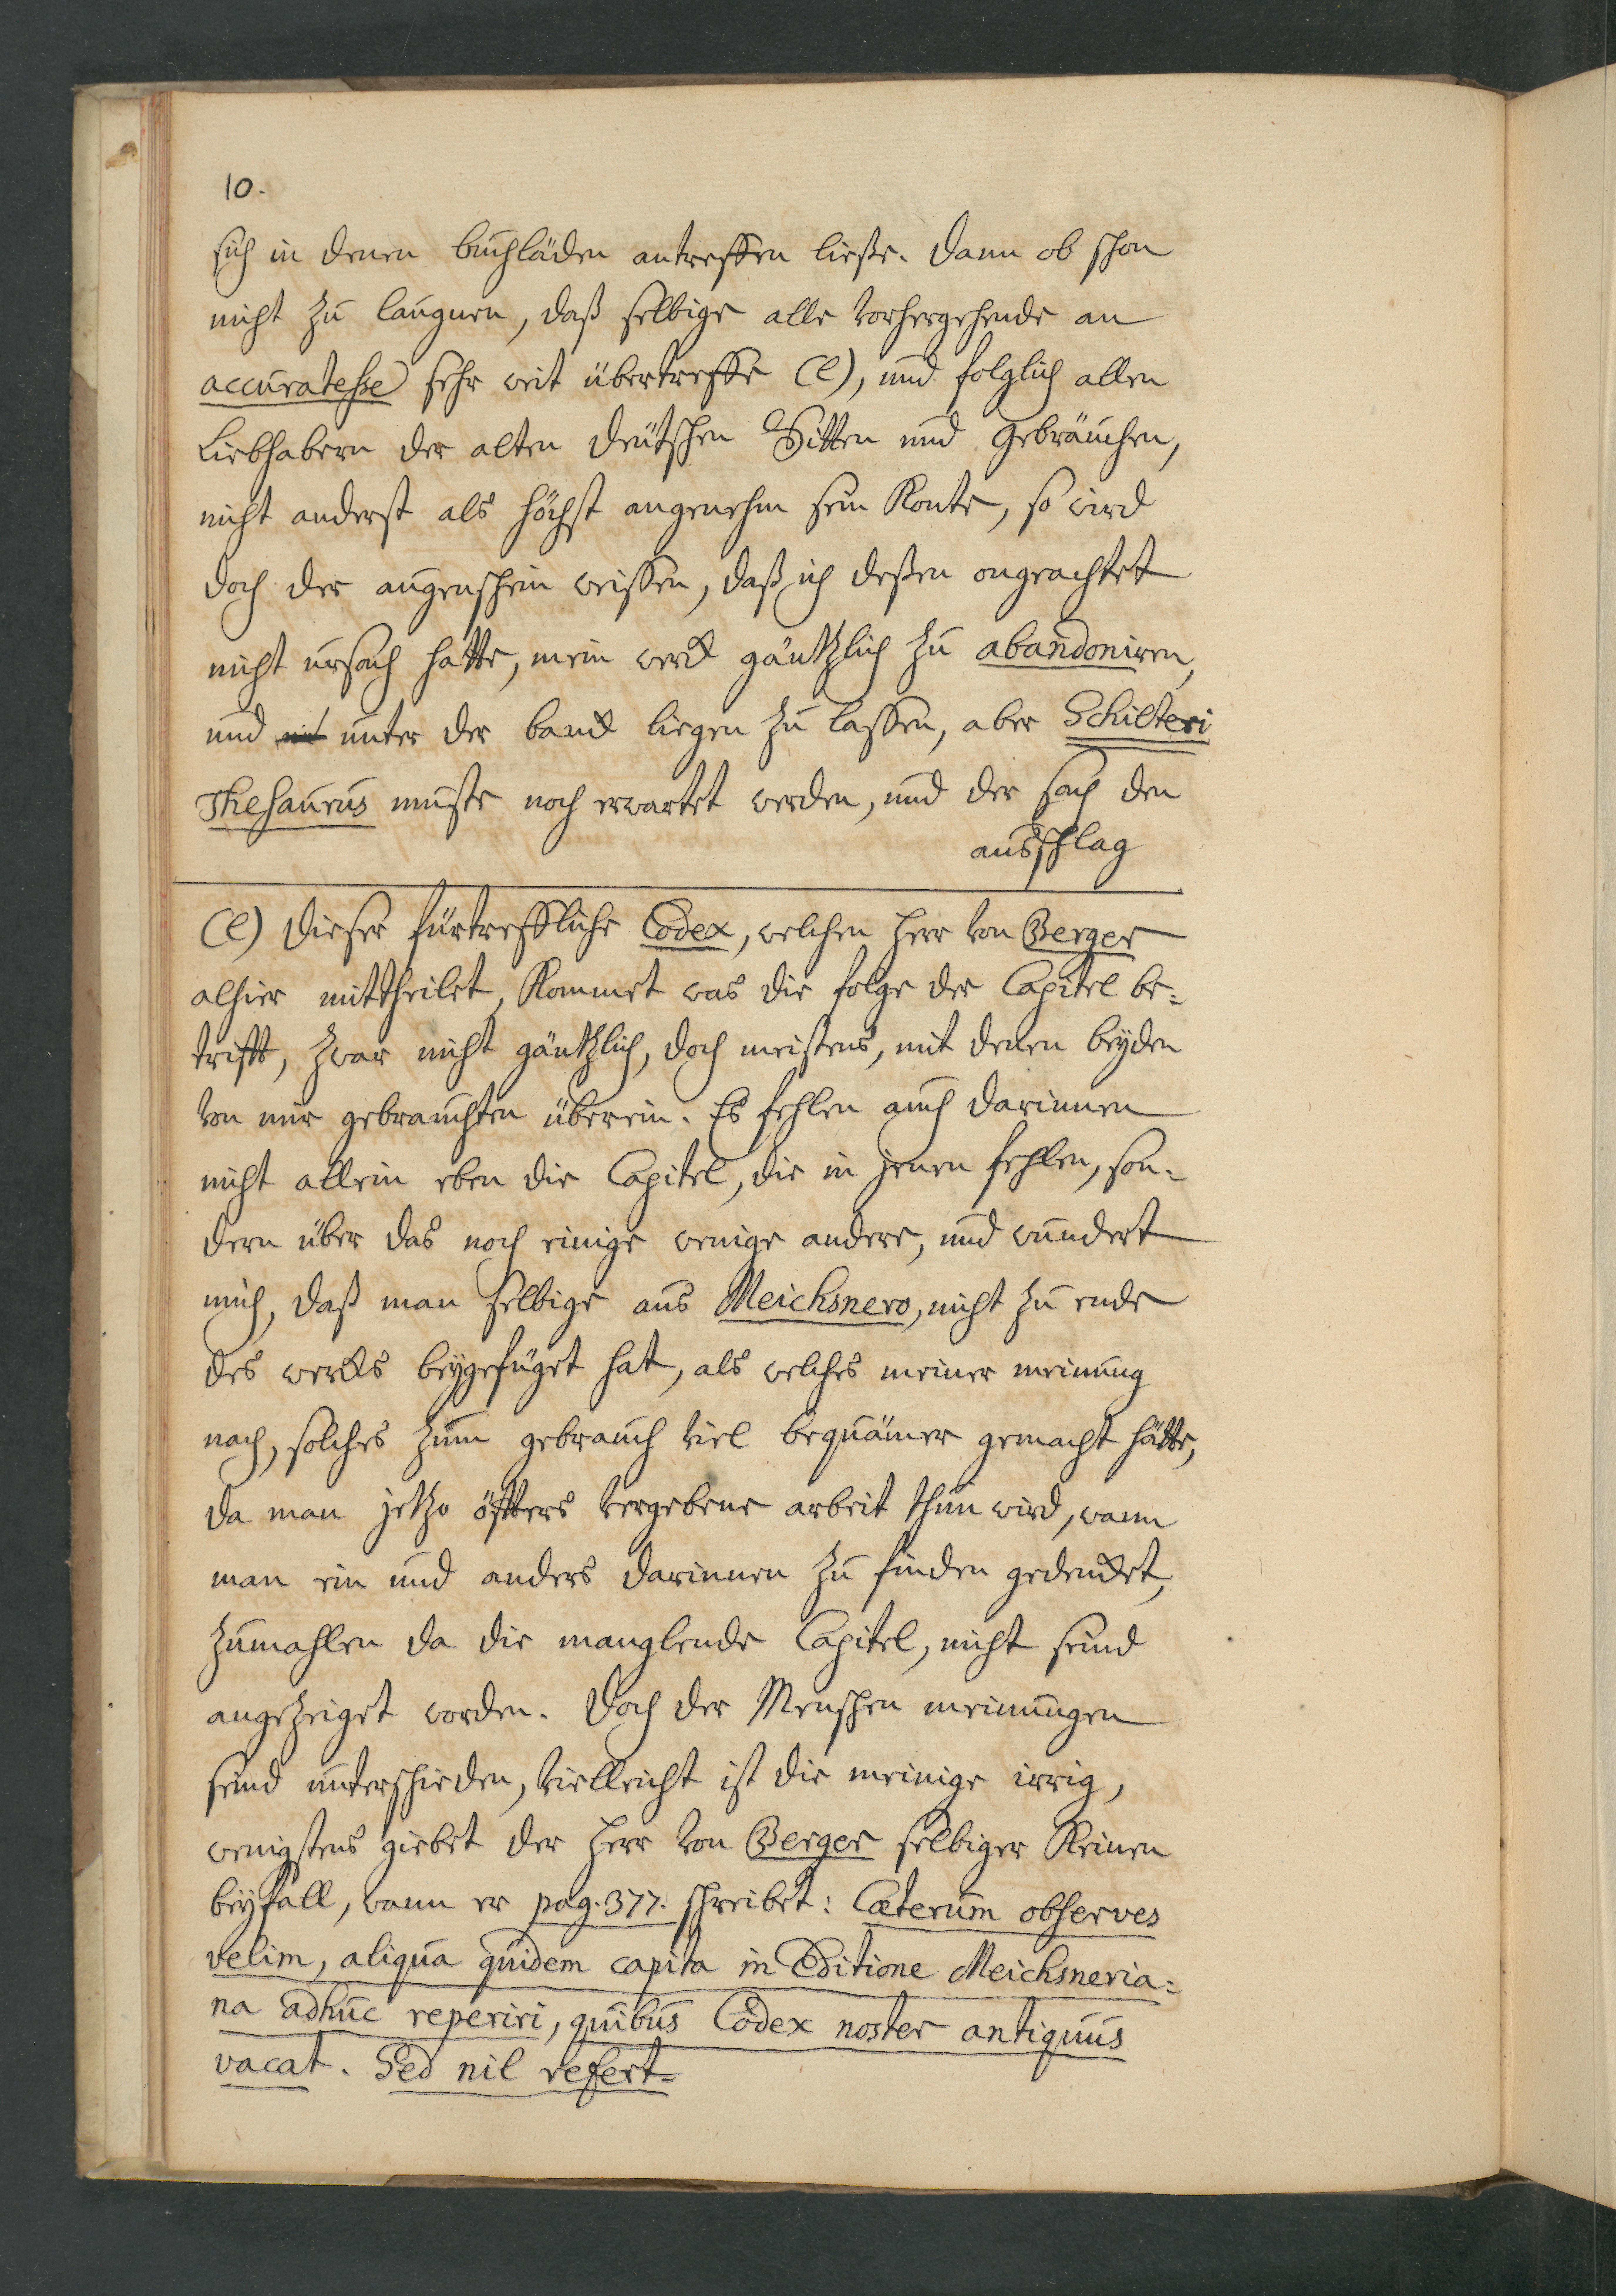 10.
sich in denen buchläden antreffen ließe. Dann ob schon
nicht zu laugnen, daß selbige alle vorhergehende an
accuratesse sehr weit übertreffe (l), und folglich allen
Liebhabern der alten deutschen Sitten und Gebräuchen,
nicht anderst als höchst angenehm sein konte, so wird
doch der augenschein weissen, daß ich deßen ongeachtet
nicht ursach hatte, mein werck gäntzlich zu abandoniren,
und unter der banck liegen zu lassen, aber Schilteri
Thesaurus muste noch erwartet werden, und der sach den
ausschlag
(l) Dieser fürtreffliche Codex, welchen herr von Berger
alhier mittheilet, kommet was die folge der Capitel be-
trifft, zwar nicht gäntzlich, doch meistens, mit denen beyden
von mir gebrauchten überein. Es fehlen auch darinnen
nicht allein eben die Capitel, die in jenen fehlen, son-
dern über das noch einige wenige andere, und wundert
mich, daß man selbige aus Meichsnero, nicht zu ende
des wercks beygefüget hat, als welches meiner meinung
nach, solches zum gebrauch viel bequämer gemacht hätte,
da man jetzo öffters vergebene arbeit thun wird, wann
man ein und anders darinnen zu finden gedencket,
zumahlen da die manglende Capitel, nicht seind
angezeiget worden. Doch der Menschen meinungen
seind unterschieden, vielleicht ist die meinige irrig,
wenigstens giebet der herr von Berger selbiger keinen
beyfall, wann er pag. 377. schreibet: Cæterum observes
velim, aliqua quidem capita in Editione Meichsneria-
na adhuc reperiri, quibus Codex noster antiquus
vacat. Sed nil refert.